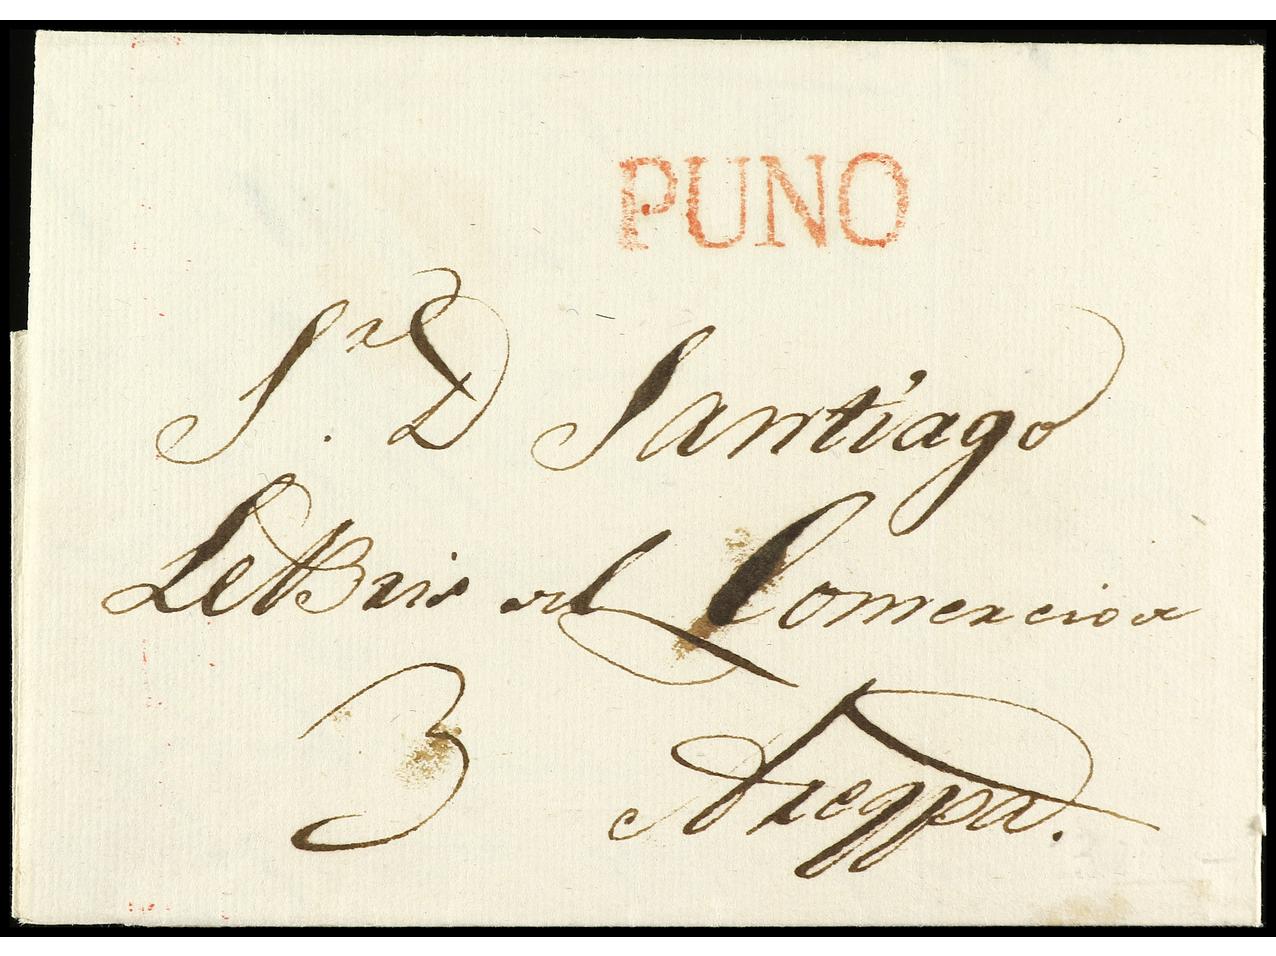 PUNO
Sr. D Santiago
LeBris del Comercio de
3 Areqpa.